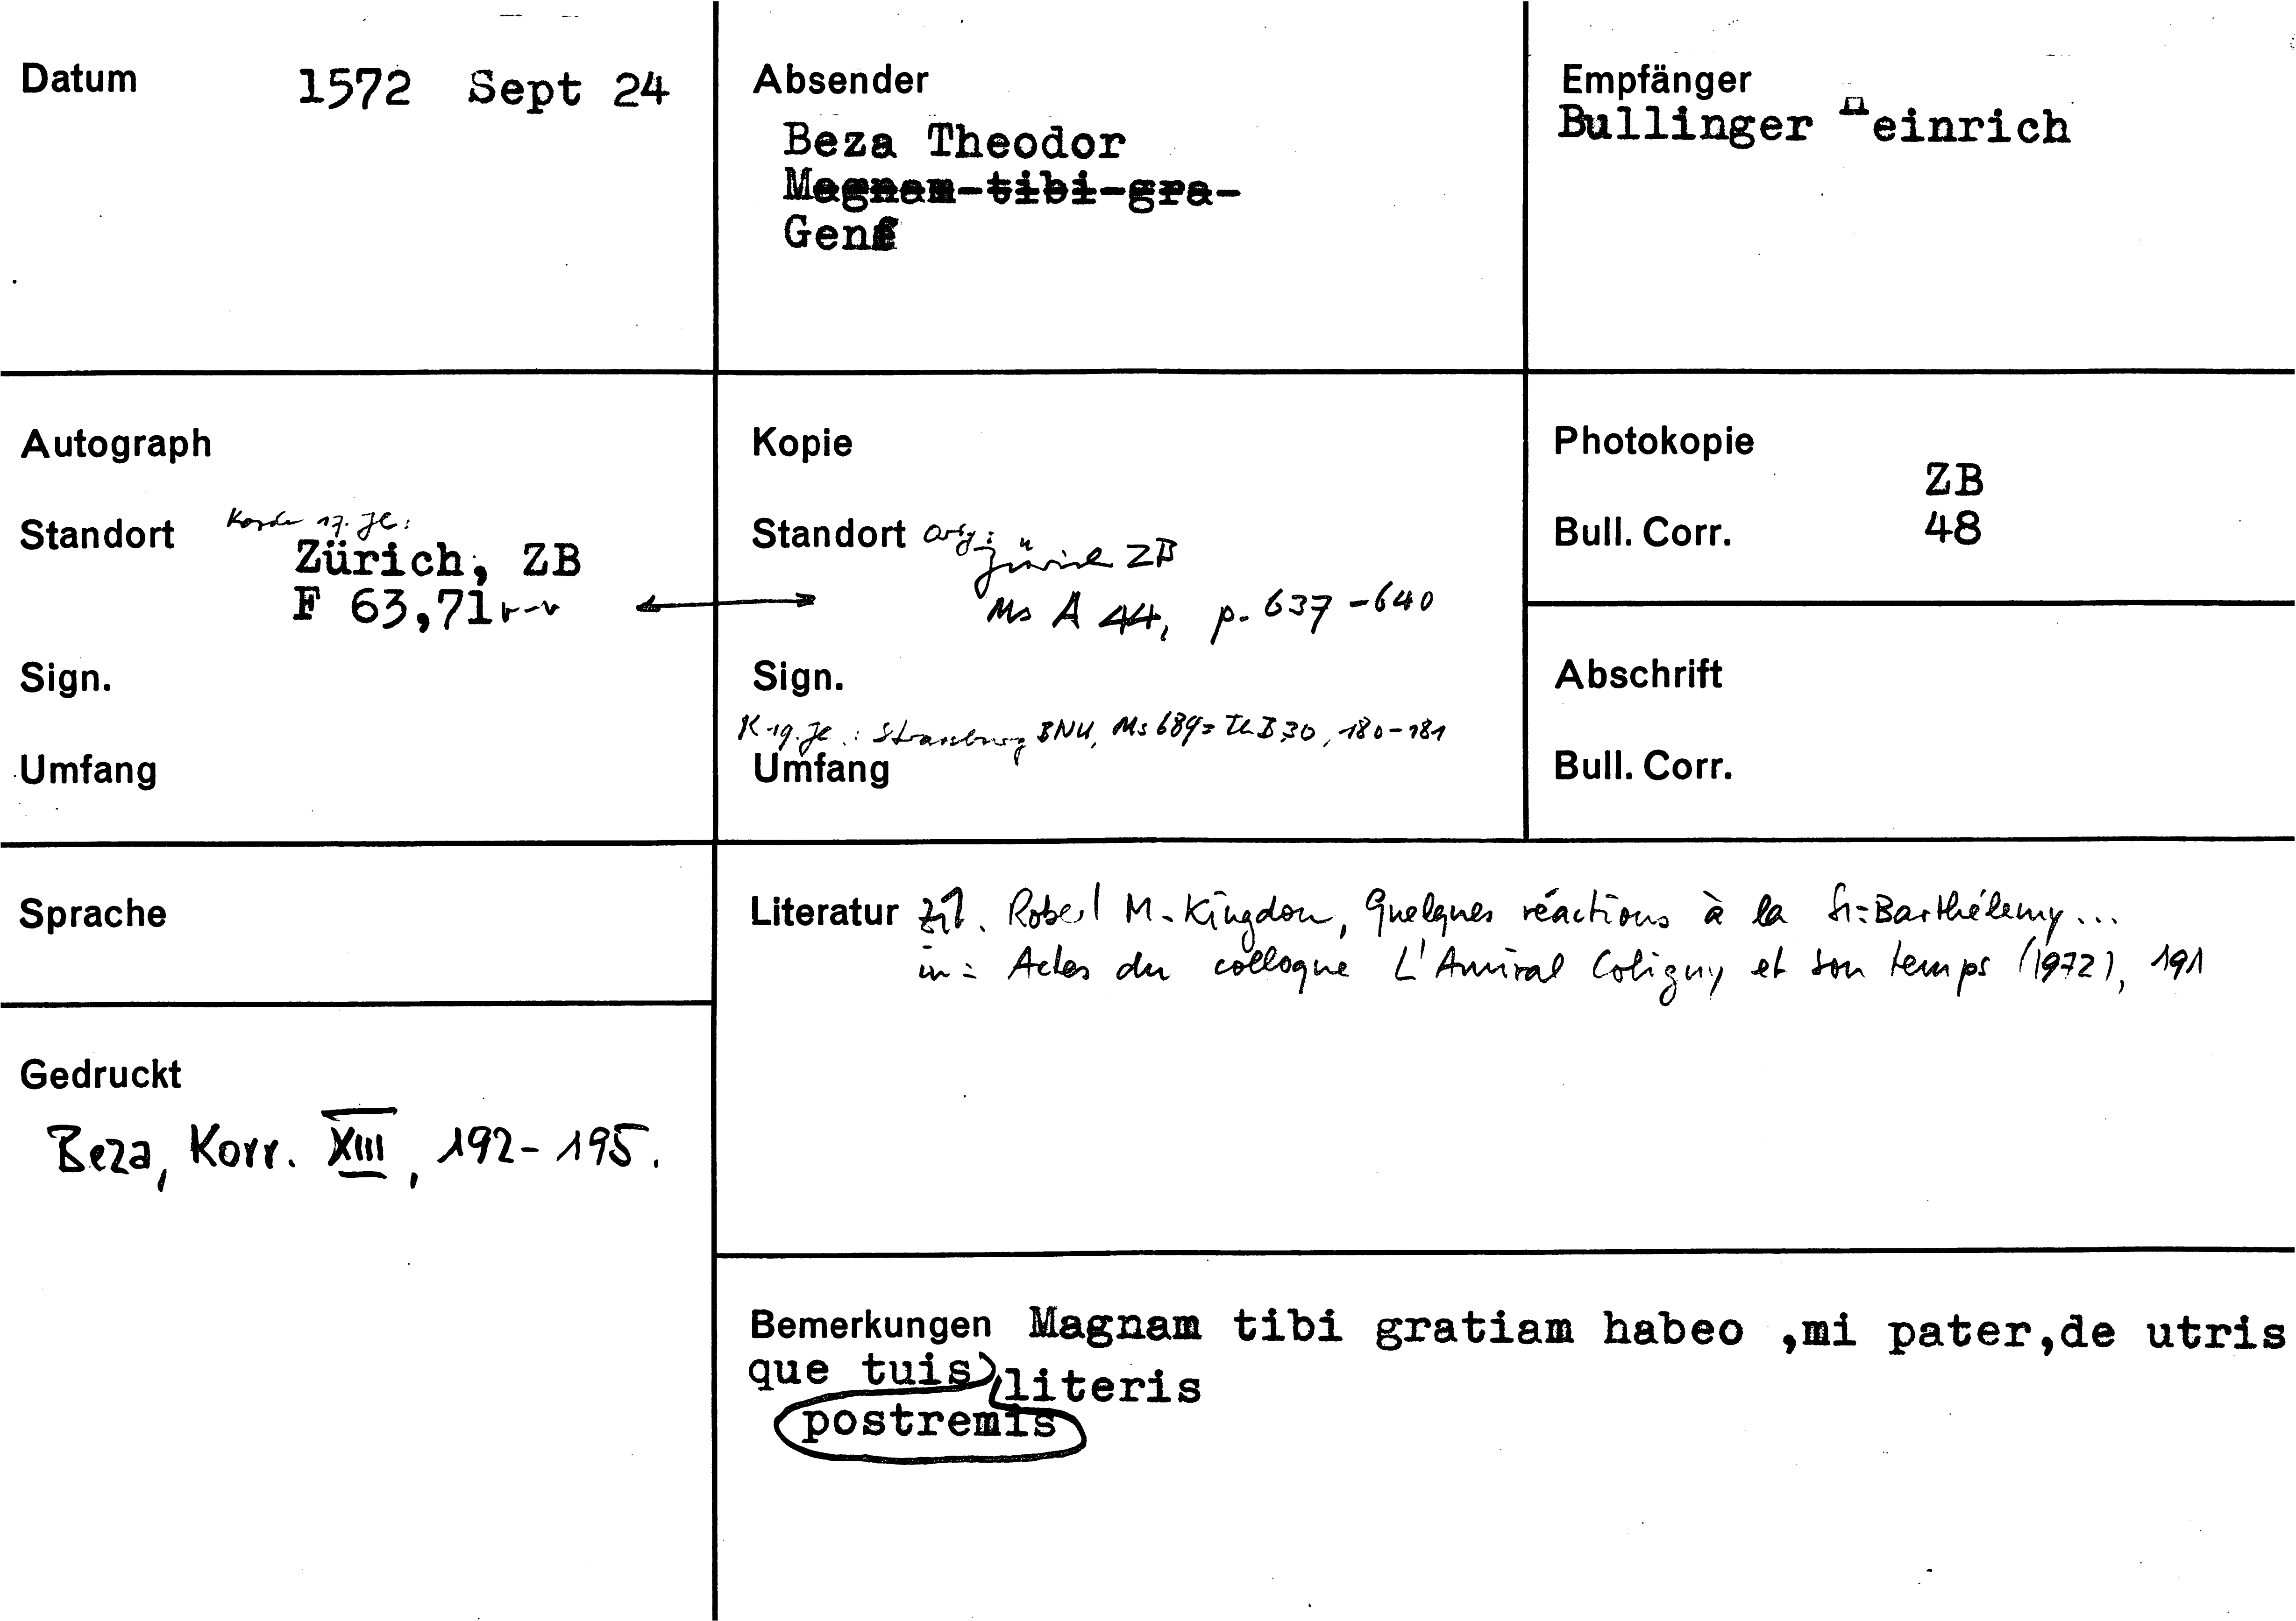 Datum 1572 Sept 24
Absender
Beza Theodor
Magnam tibi gra-
Genf
Empfänger
Bullinger Heinrich
Autograph
Standort 17. Jh:
Zürich, ZB
F 63,71r-v
Sign.
Umfang
Kopie
Standort Orig: Zürich ZB
Ms A 44, p. 637-640
Sign.
K 19. Jh.: Strassburg BNU, Ms 689= Th B 30, 180-181
Umfang
Photokopie
ZB
Bull. Corr. 48
Abschrift
Bull. Corr.
Sprache
Gedruckt
Beza, Korr. XIII, 192-195.
Literatur Zit. Robert M. Kingdon, Quelques réactions à la St-Barthélemy...
in: Actes du colloque L'Amiral Coligny et son temps (1972), 191
Bemerkungen Magnam tibi gratiam habeo ,mi pater,de utris
que tuis literis
postremis